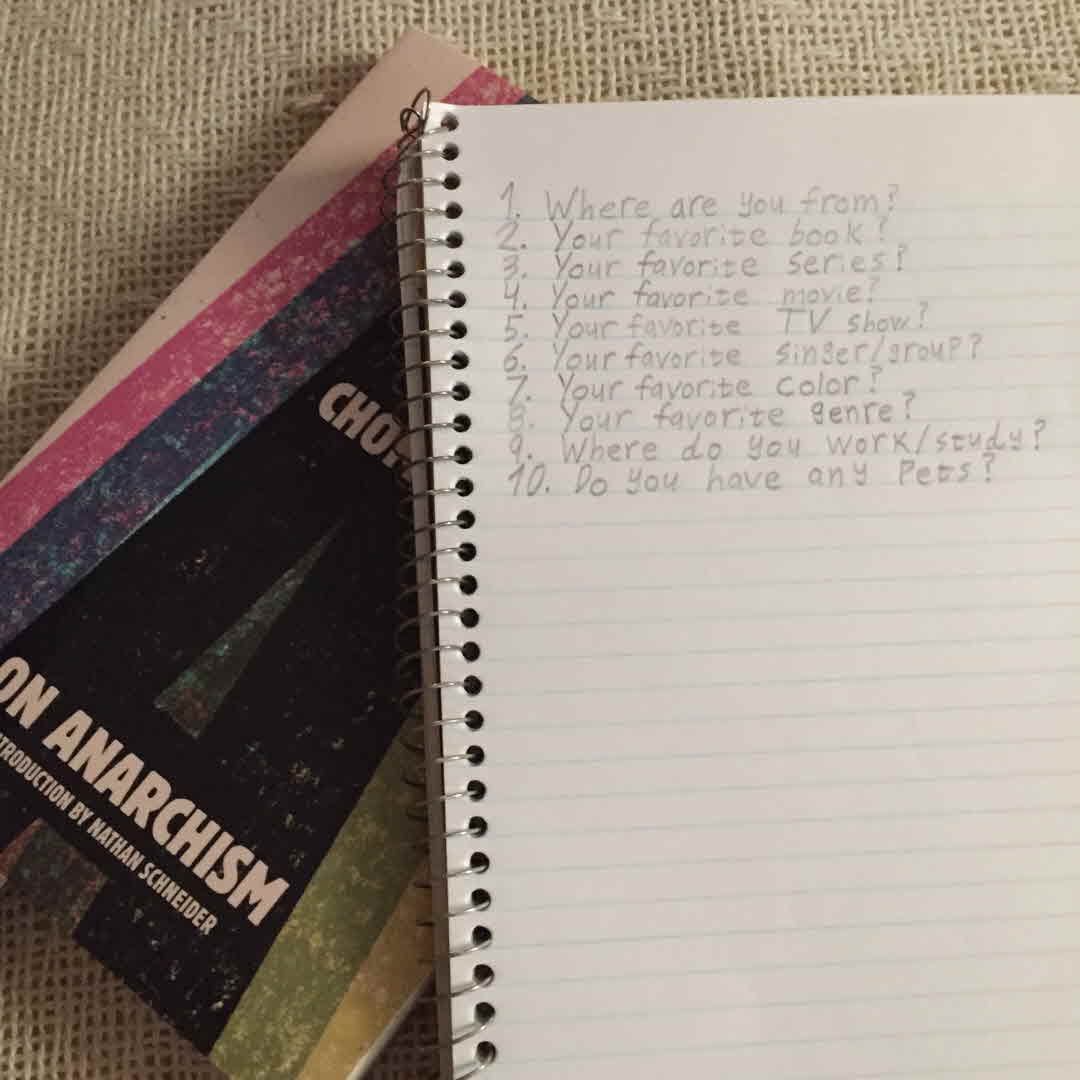 1. Where are you from?
2. Your favorite book?
3. Your favorite series?
4. Your favorite movie?
5. Your favorite TV show?
6. Your favorite singer/group?
7. Your favorite color?
8. Your favorite genre?
9. Where do you work/study?
10. Do you have any Pets?
CHO
ON ANARCHISM
TRODUCTION BY NATHAN SCHNEIDER